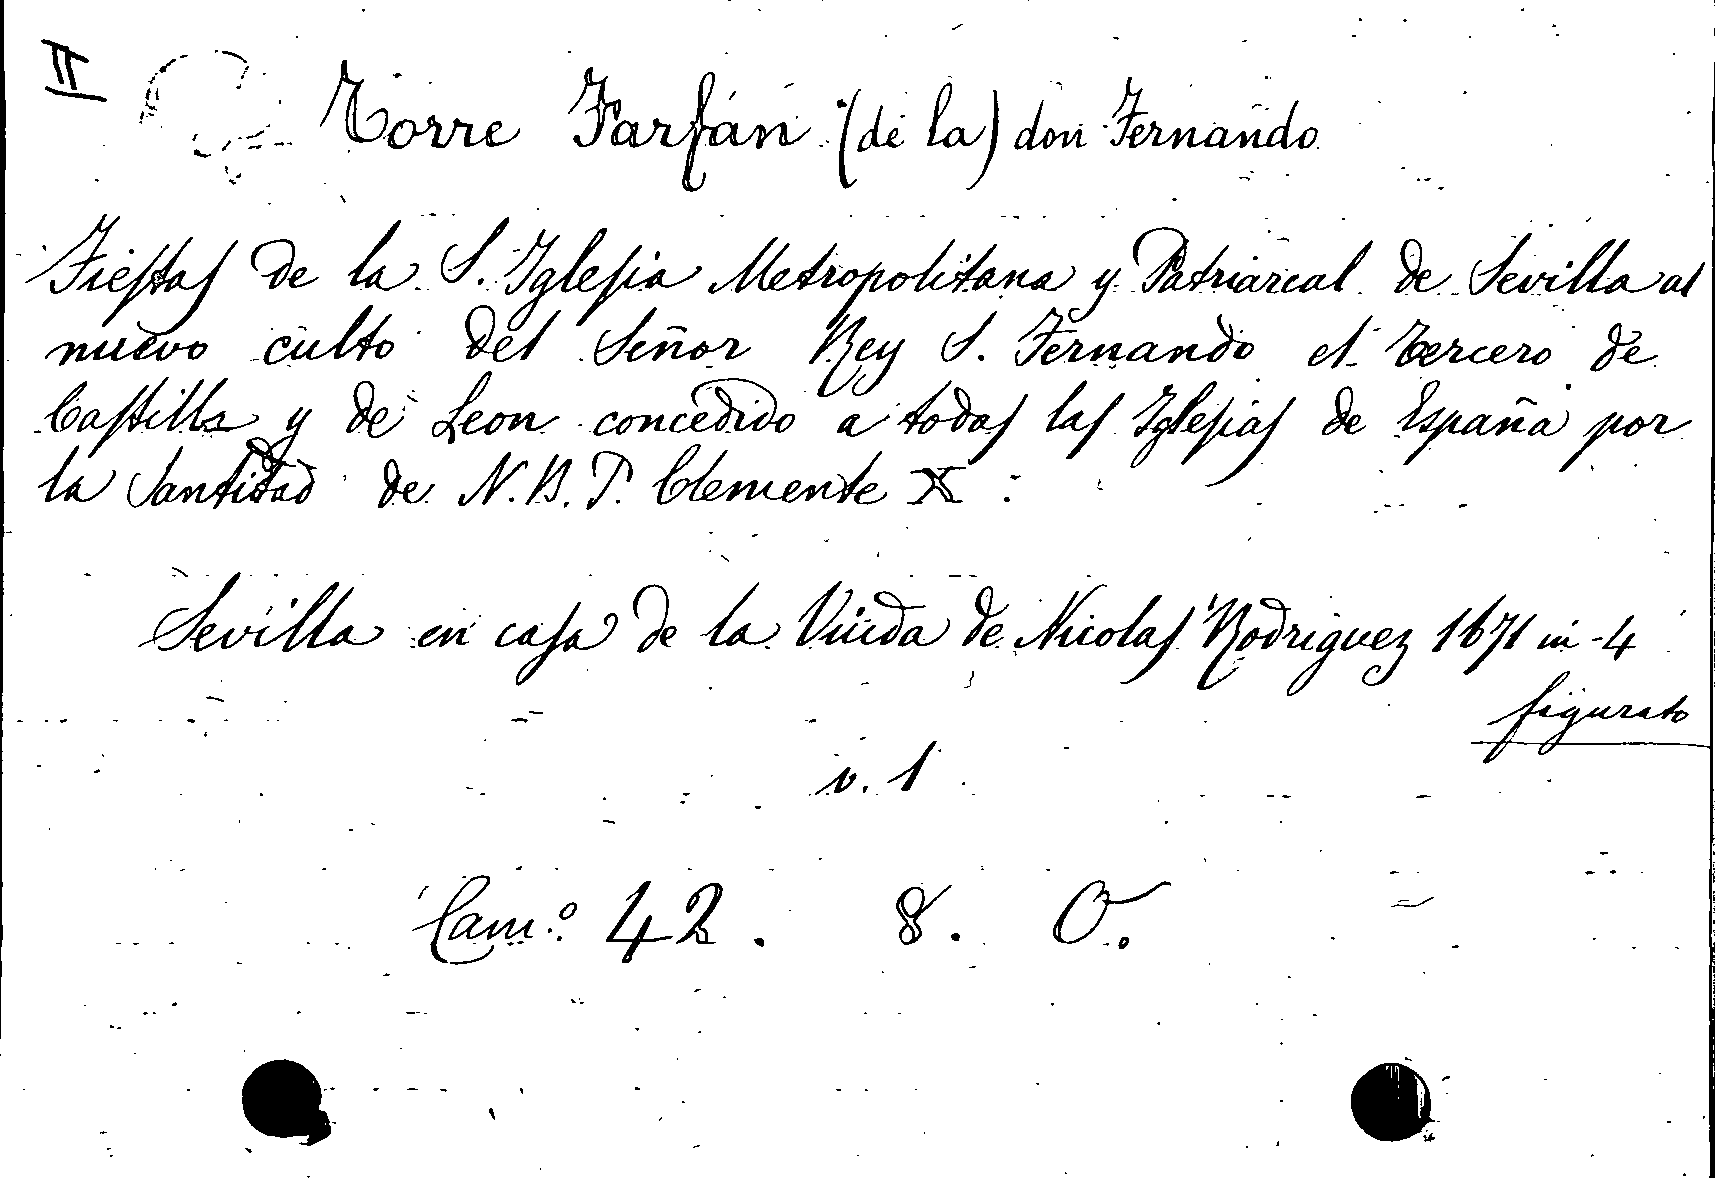 II
Torre Farfán (de la) don Fernando
Fieſtaſ de la S. Igleſia Metropolitana y Patriarcal de Sevilla al
nuevo culto del Señor Rey S. Fernando el tercero de
Caſtilla y de Leon concedido a todaſ laſ Igleſiaſ de España por
la Santidad de N. B. P. Clemente X :
Sevilla en caſa de la Viuda de Nicolaſ Rodriguez 1671 in-4
figurato
v. 1
Cam.º 42. 8. O.